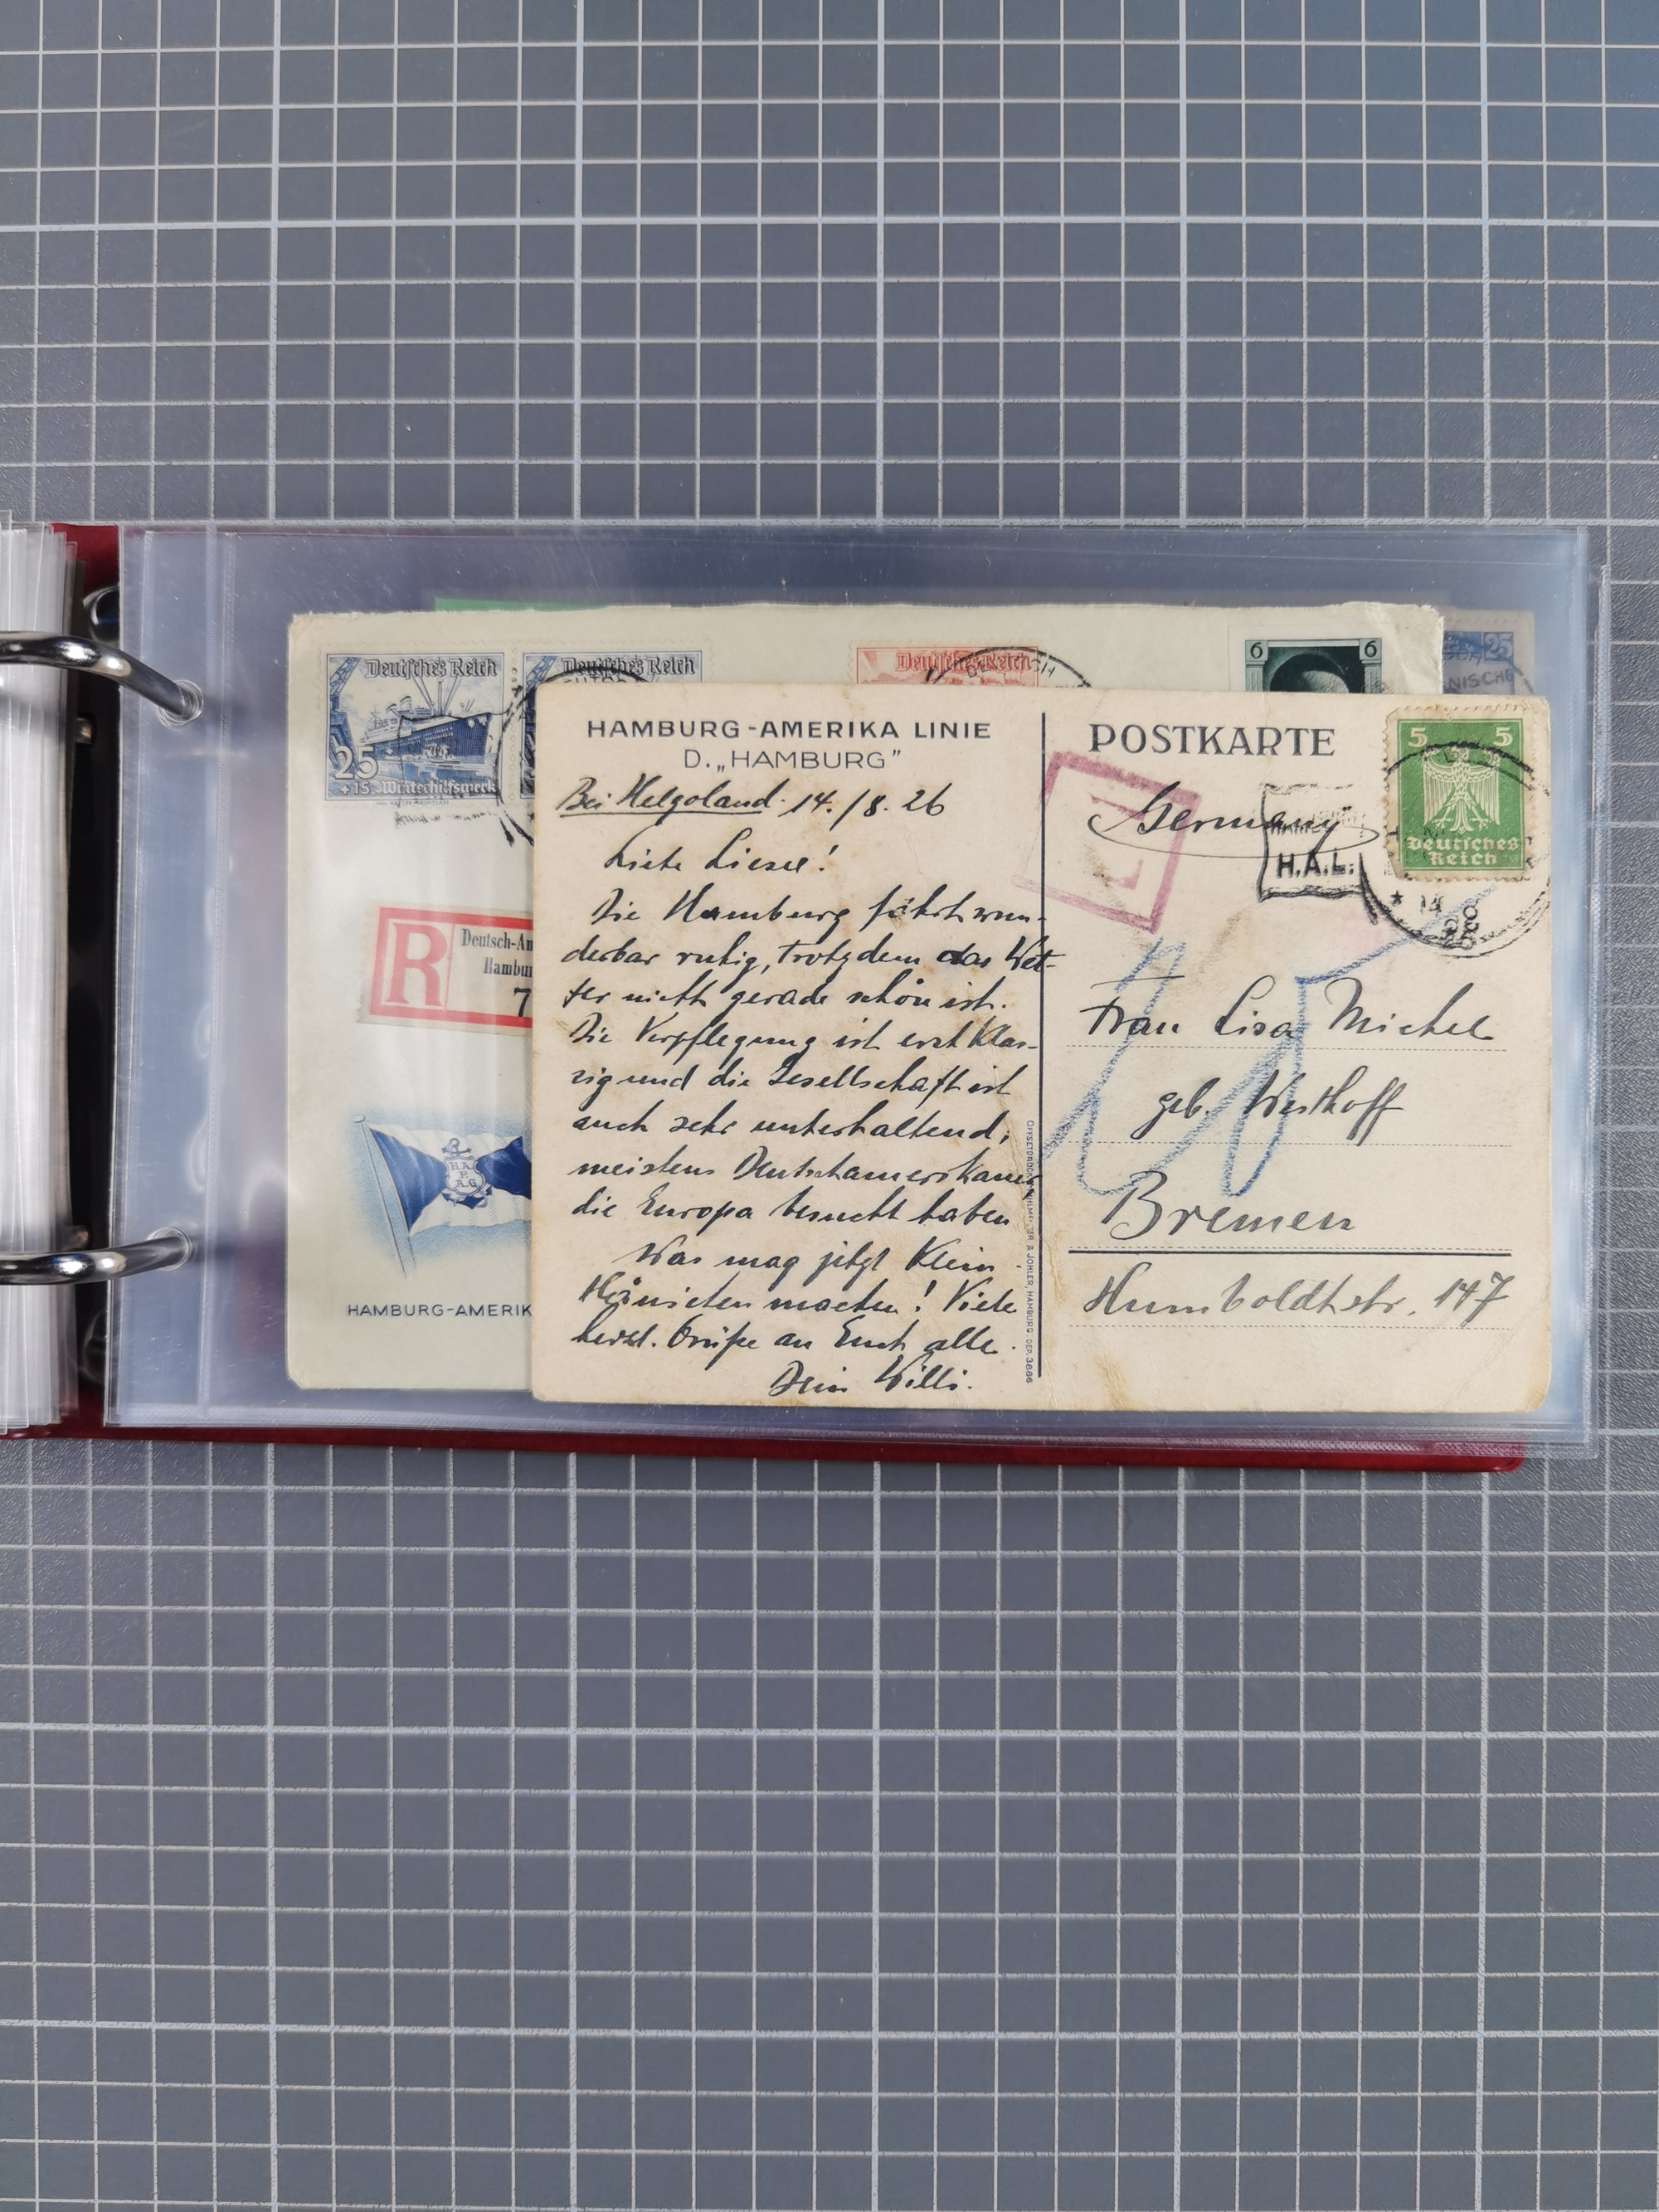 Deutsches Reich
25
+15 Winterhilfswerk
Deutsches Reich
Deutsches Reich
6 6
25
NISCHE
R
Deutsch-Am
Hambur
7
HA
P.
A.G
HAMBURG-AMERIK
HAMBURG-AMERIKA LINIE
D. „HAMBURG”
Bei Helgoland 14./8. 26
Liebe Liesel!
Die Hamburg fährt wun-
derbar ruhig, trotzdem das Wet-
ter nicht gerade schön ist.
Die Verpflegung ist erstklas-
sig und die Gesellschaft ist
auch sehr unterhaltend,
meistens Deutschamerikaner
die Europa besucht haben
Was mag jetzt Klein
machen! Viele
herzl. Grüße an Euch alle.
Dein Willi.
OFFSETDRUCK & JOHLER, HAMBURG. DEP. 3886
POSTKARTE
Germany
H.A.L.
5 5
Deutsches
Reich
* 14 8
26
Frau Lisa Michel
geb. Westhoff
Bremen
Humboldtstr. 147